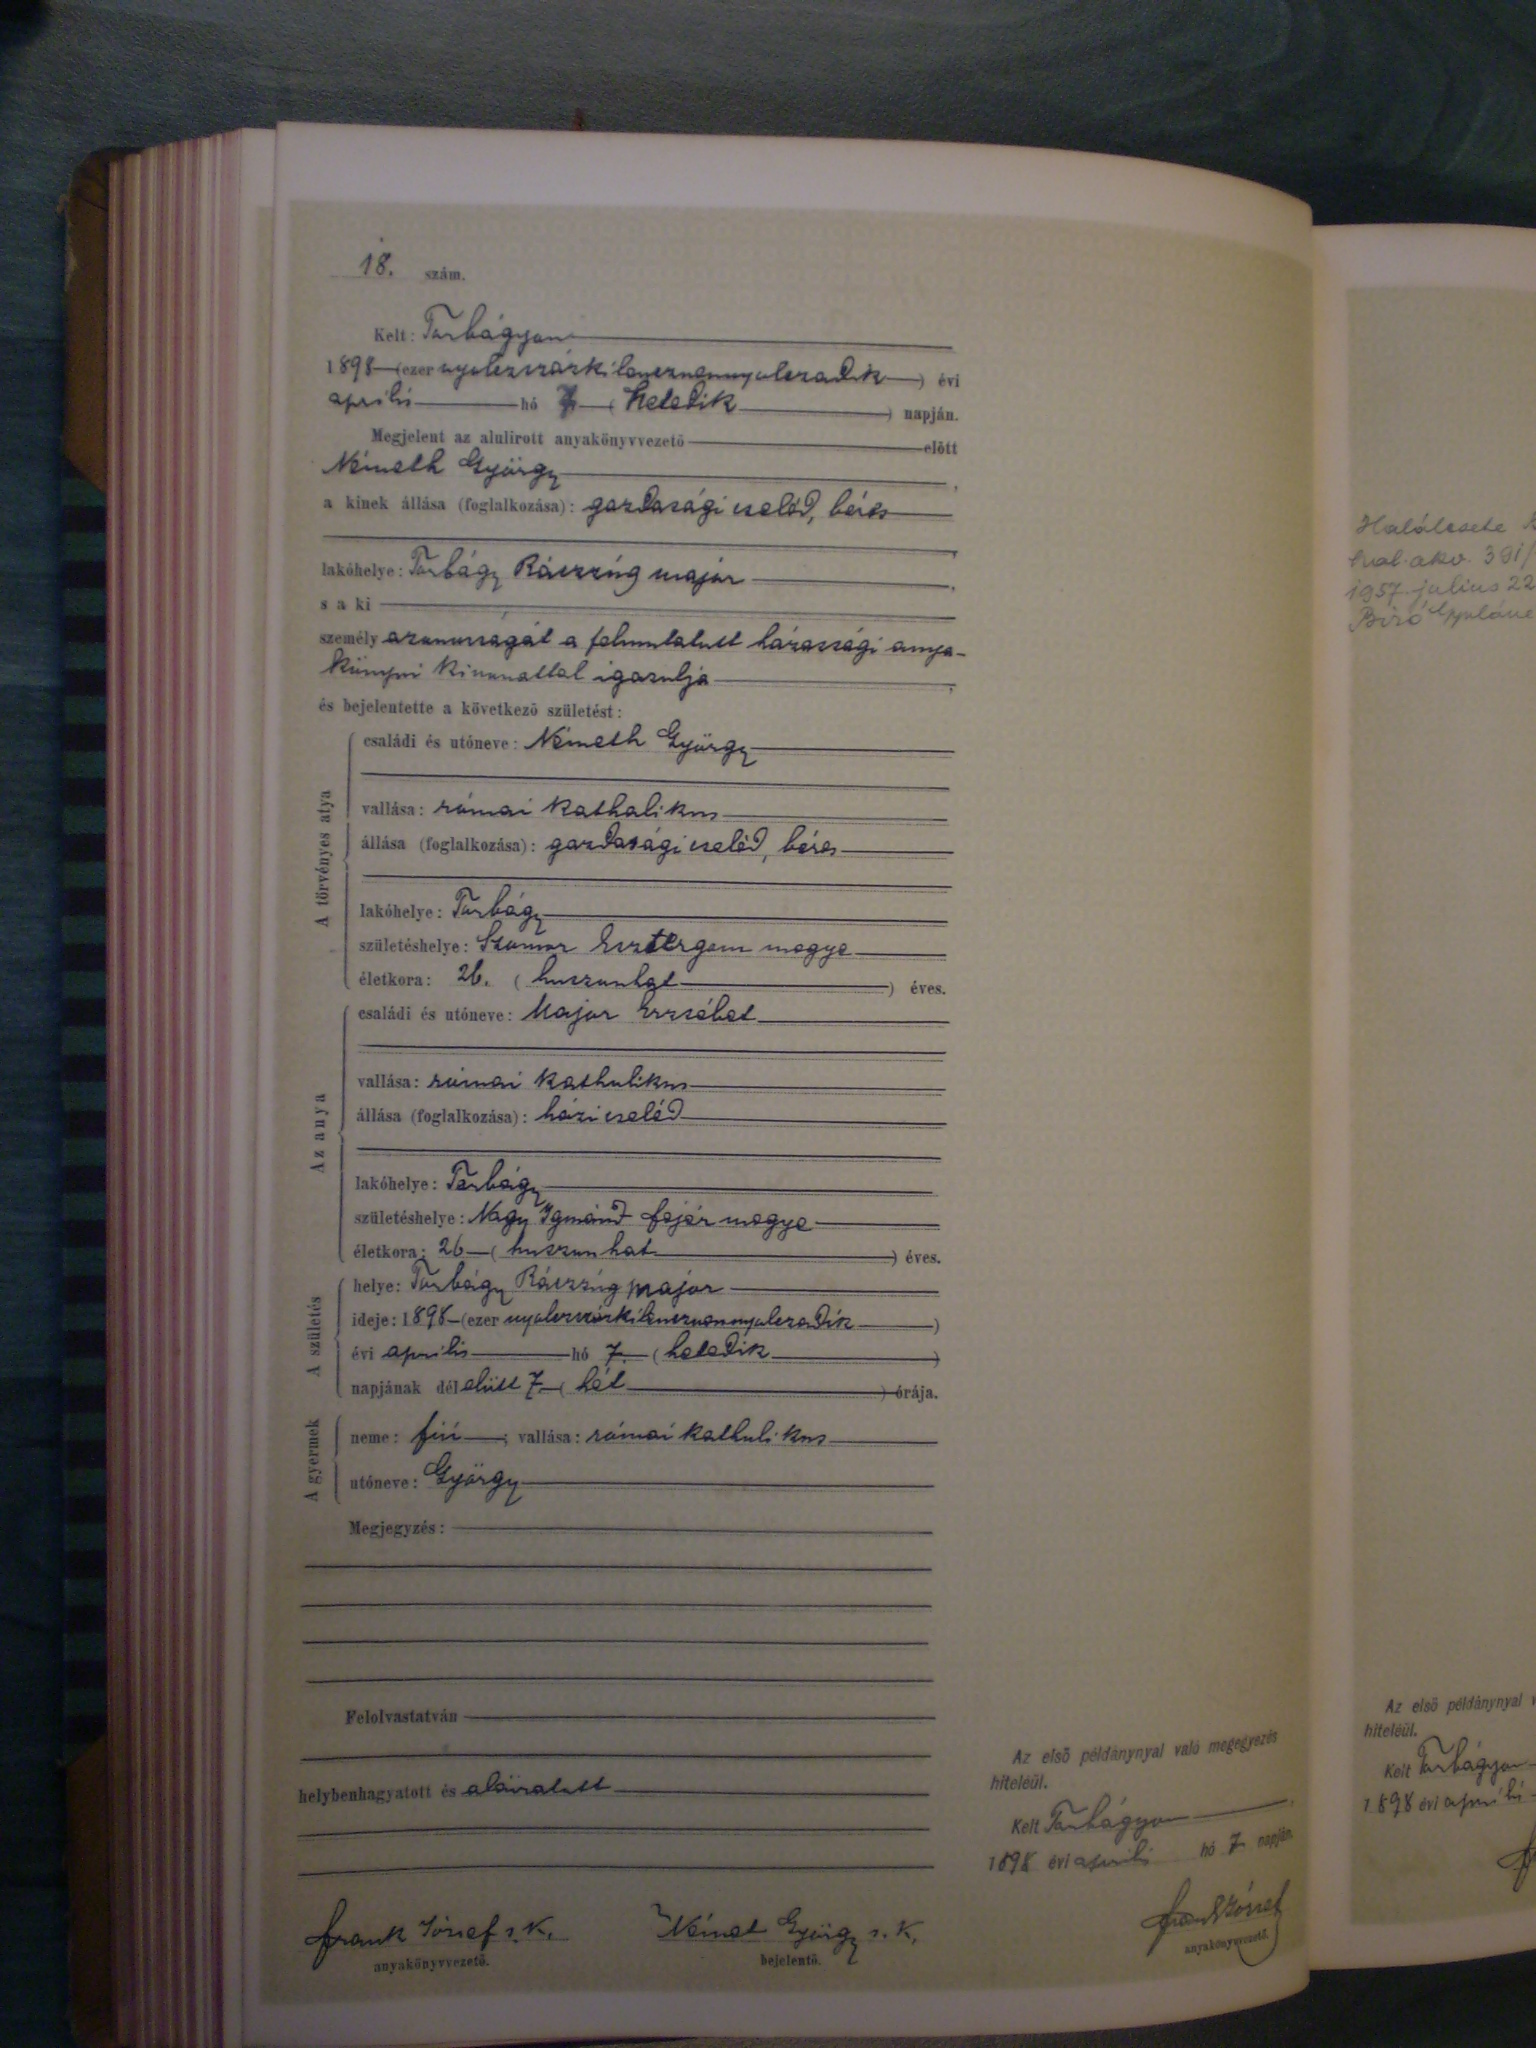 18. szám.
Kelt: Torbágyon
1898 (ezer nyolczszázkilenczvennyolczadik) évi
április hó 7 (hetedik) napján.
Megjelent az alulirott anyakönyvvezető előtt
Németh György,
a kinek állása (foglalkozása): gazdasági cseléd, béres
lakóhelye: Torbágy Ráczzúg major,
s a ki
személy azonosságát a felmutatott házassági anya-
könyvi kivonattal igazolja,
és bejelentette a következő születést:
A törvényes atya
családi és utóneve: Németh György
vallása: római katholikus
állása (foglalkozása): gazdasági cseléd, béres
lakóhelye: Torbágy
születéshelye: Szomor Esztergom megye
életkora: 26. (huszonhat) éves.
Az anya
családi és utóneve: Major Erzsébet
vallása: római katholikus
állása (foglalkozása): házi cseléd
lakóhelye: Torbágy
születéshelye: Nagy Igmánd fejér megye
életkora: 26 (huszonhat) éves.
A születés
helye: Torbágy Ráczzúg major
ideje: 1898 (ezer nyolczszázkilenczvennyolczadik)
évi április hó 7. (hetedik)
napjának délelőtt 7 (hét) órája.
A gyermek
neme: fiú; vallása: római katholikus
utóneve: György
Megjegyzés:
Felolvastatván
helybenhagyatott és aláiratott
Frank József s. k. Német György s. k.
anyakönyvvezető. bejelentő.
Az első példánynyal való megegyezés
hiteléül.
Kelt Torbágyon
1898 évi április hó 7 napján.
Frank József
anyakönyvvezető.
Halálesete
hal. akv. 391/
1957. július 22
Biró Gyuláné
Az első példánynyal
hiteléül.
Kelt Torbágyon
1898 évi április